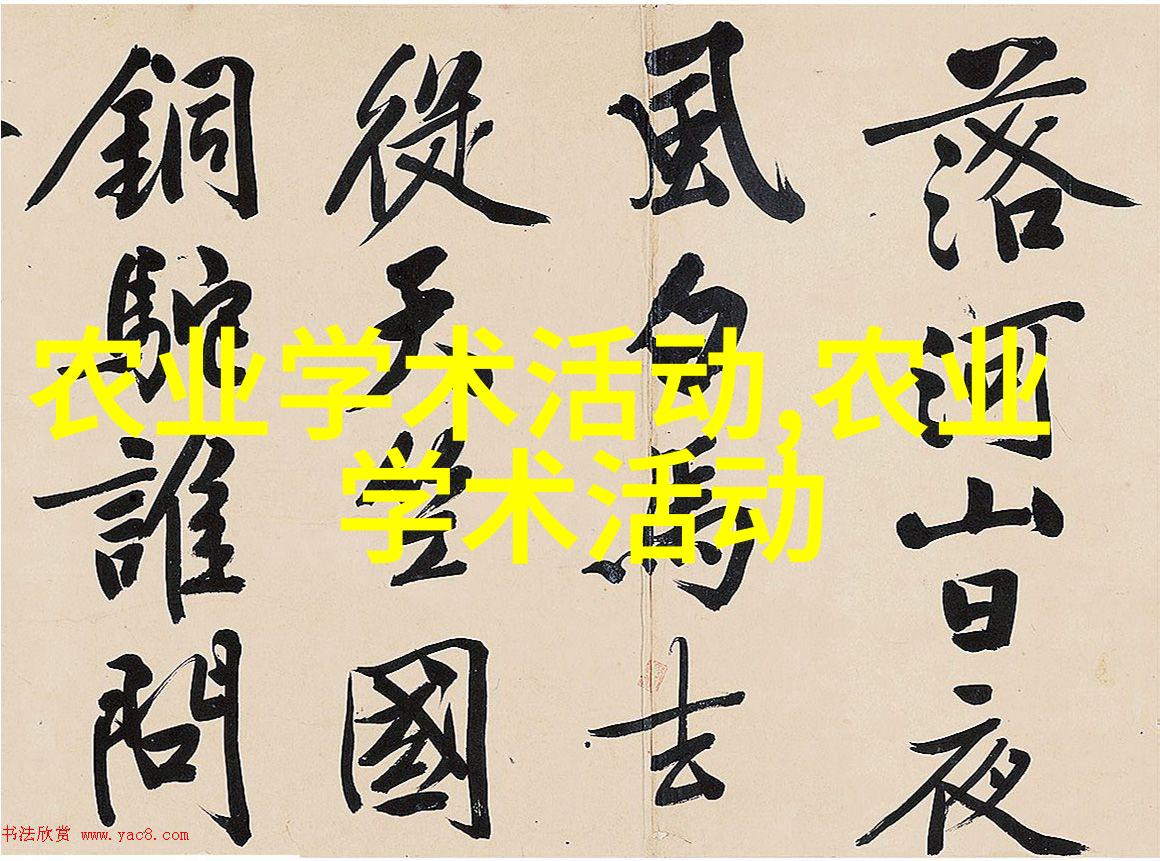 落河山日夜
風白馬去
從天竺國
銅駝誰問
农业学术活动,农业
学术活动
书法欣赏 www.yac8.com